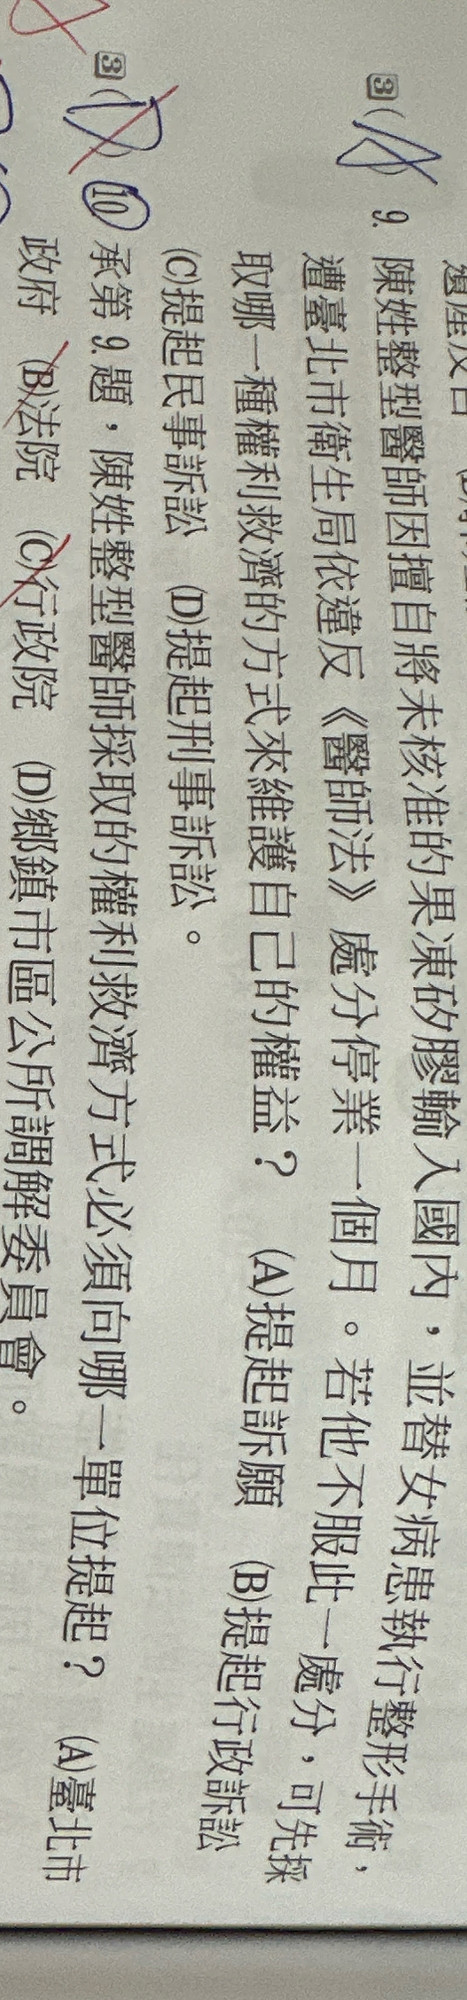 3 (A) 9. 陳姓整型醫師因擅自將未核准的果凍矽膠輸入國內，並替女病患執行整形手術，
遭臺北市衛生局依違反《醫師法》處分停業一個月。若他不服此一處分，可先採
取哪一種權利救濟的方式來維護自己的權益？ (A)提起訴願 (B)提起行政訴訟
(C)提起民事訴訟 (D)提起刑事訴訟。
3 (D) 10. 承第 9. 題，陳姓整型醫師採取的權利救濟方式必須向哪一單位提起？ (A)臺北市
政府 (B)法院 (C)行政院 (D)鄉鎮市區公所調解委員會。